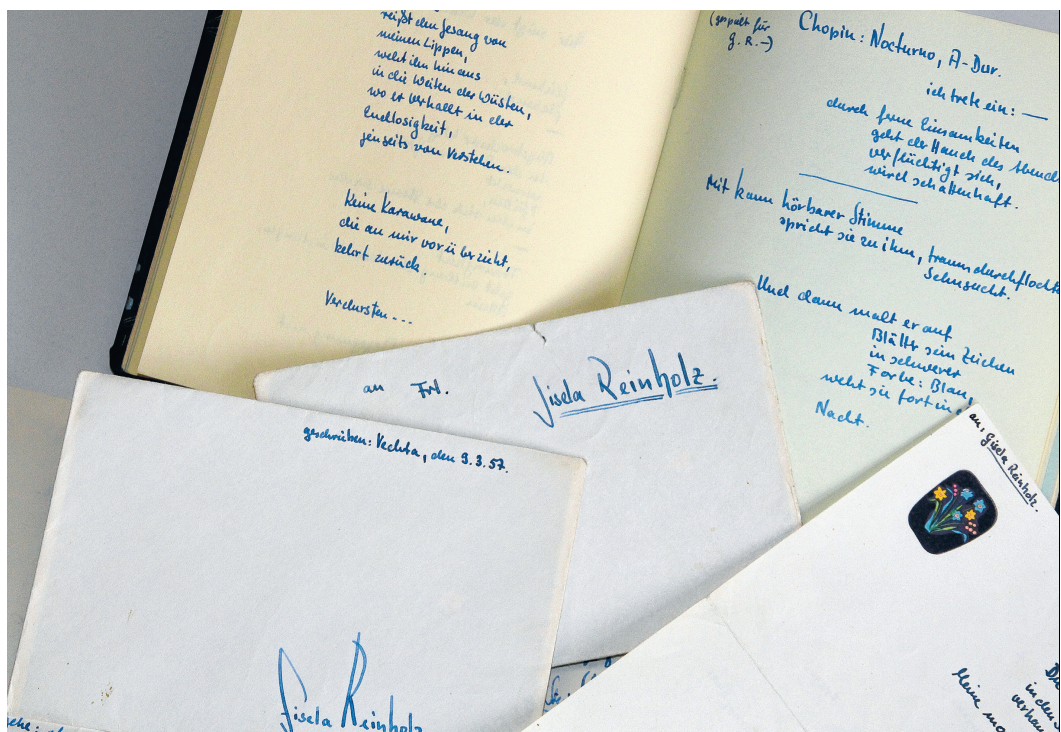 reißt den Gesang von
meinen Lippen,
weht ihn hinaus
in die Weiten der Wüsten,
wo er verhallt in der
Endlosigkeit,
jenseits von Verstehen.
Keine Karawane,
die an mir vorüberzieht,
kehrt zurück.
Verdursten ...
(gespielt für
G. R. –)
Chopin: Nocturno, A-Dur.
ich trete ein: —
durch ferne Einsamkeiten
geht der Hauch des Abend
verflüchtigt sich,
wird schattenhaft.
Mit kaum hörbarer Stimme
spricht sie zu ihm, traumdurchflocht
Sehnsucht.
Und dann malt er auf
Blätter sein Zeichen
in schwerer
Farbe: Blau,
weht sie fort in
Nacht.
an Frl. Gisela Reinholz.
geschrieben: Vechta, den 9.3.57.
Gisela Reinholz
an: Gisela Reinholz.
in den
verhau
Meine